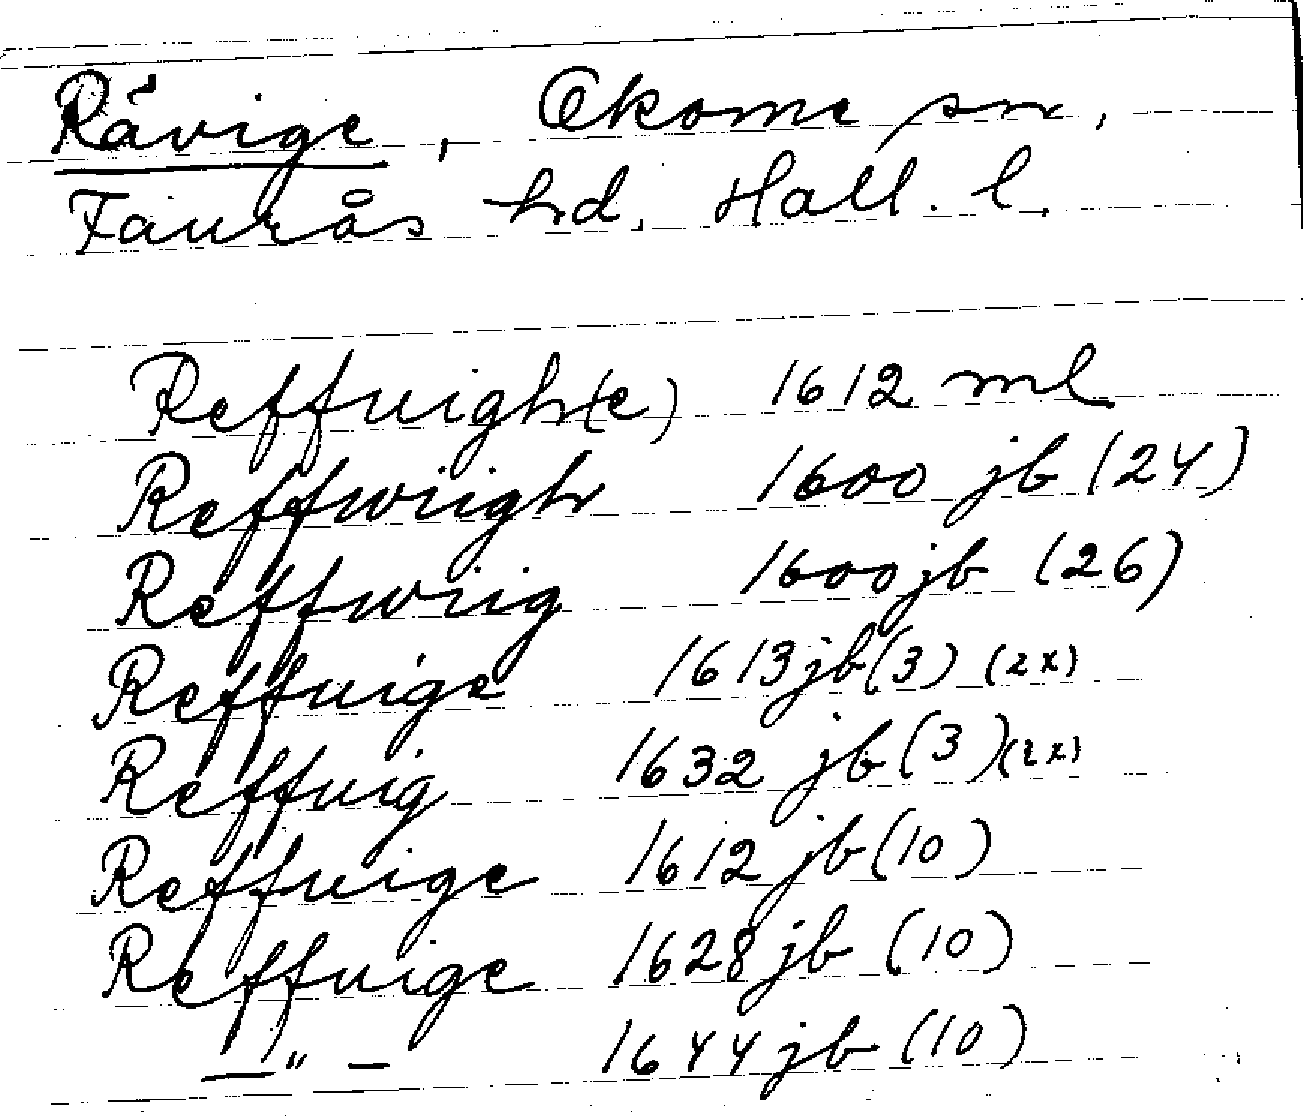 Rävige, Okome sn,
Faurås hd. Hall. l.
Reffuigh(e) 1612 ml
Reffwiigh 1600 jb (24)
Reffwiig 1600 jb (26)
Reffuige 1613 jb (3) (2x)
Reffuig 1632 jb (3) (2x)
Reffuige 1612 jb (10)
Reffuige 1628 jb (10)
—"— 1644 jb (10)